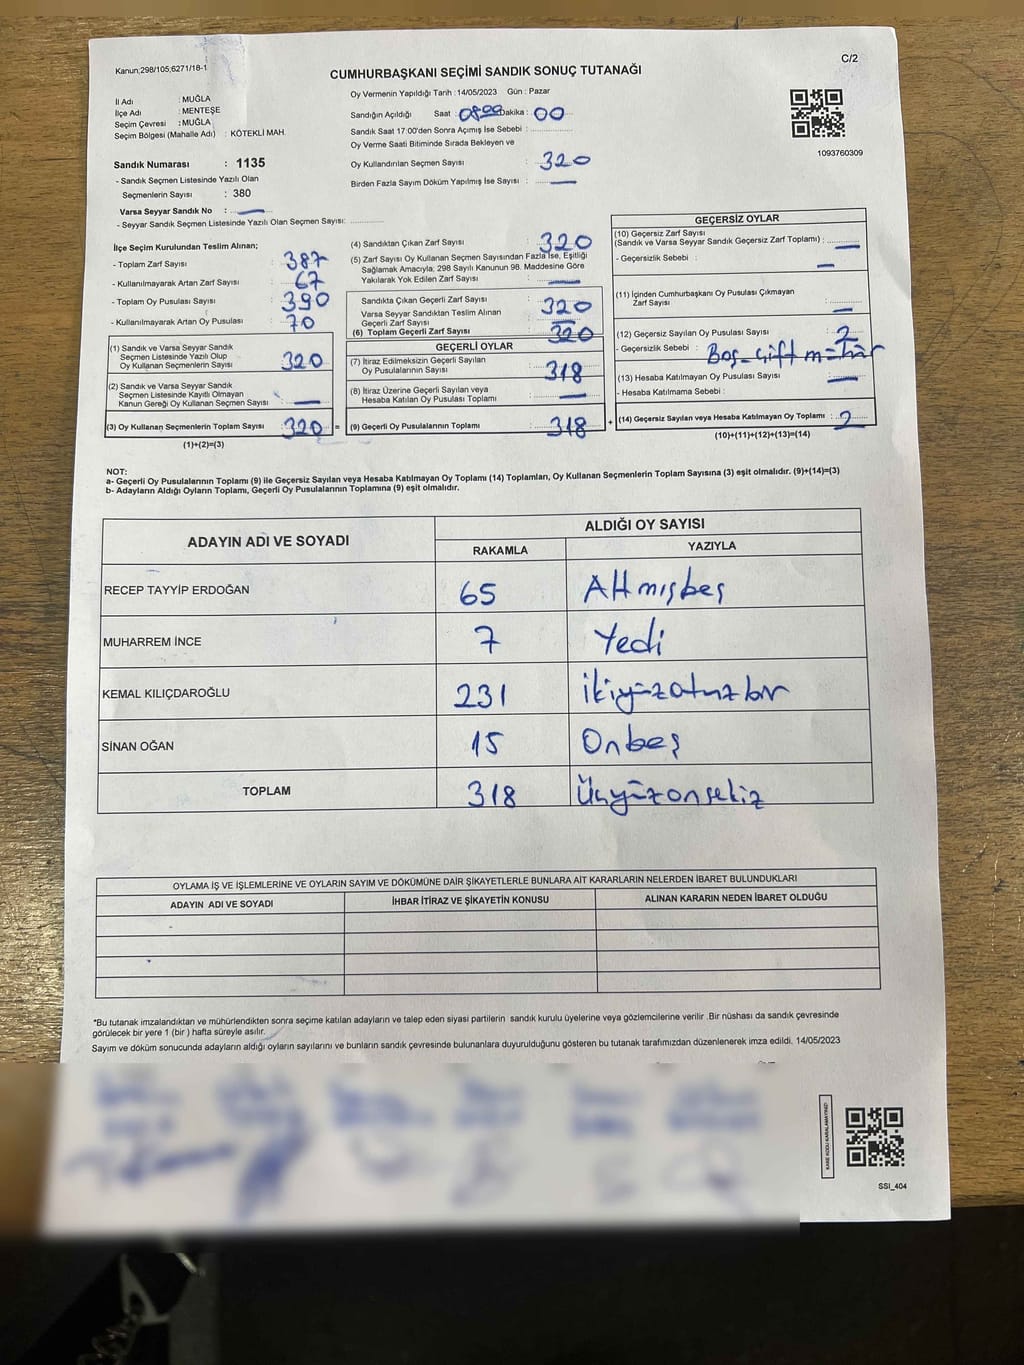 Kanun;298/105;6271/18-1
C/2
CUMHURBAŞKANI SEÇİMİ SANDIK SONUÇ TUTANAĞI
İl Adı : MUĞLA
İlçe Adı : MENTEŞE
Seçim Çevresi : MUĞLA
Seçim Bölgesi (Mahalle Adı) : KÖTEKLİ MAH.
Sandık Numarası : 1135
- Sandık Seçmen Listesinde Yazılı Olan
Seçmenlerin Sayısı : 380
Varsa Seyyar Sandık No :
- Seyyar Sandık Seçmen Listesinde Yazılı Olan Seçmen Sayısı:
Oy Vermenin Yapıldığı Tarih : 14/05/2023 Gün : Pazar
Sandığın Açıldığı Saat : 08:00 Dakika : 00
Sandık Saat 17:00'den Sonra Açımış İse Sebebi :
Oy Verme Saati Bitiminde Sırada Bekleyen ve
Oy Kullandırılan Seçmen Sayısı : 320
Birden Fazla Sayım Döküm Yapılmış İse Sayısı : —
1093760309
İlçe Seçim Kurulundan Teslim Alınan;
- Toplam Zarf Sayısı : 387
- Kullanılmayarak Artan Zarf Sayısı : 67
- Toplam Oy Pusulası Sayısı : 390
- Kullanılmayarak Artan Oy Pusulası : 70
(1) Sandık ve Varsa Seyyar Sandık
Seçmen Listesinde Yazılı Olup
Oy Kullanan Seçmenlerin Sayısı : 320
(2) Sandık ve Varsa Seyyar Sandık
Seçmen Listesinde Kayıtlı Olmayan
Kanun Gereği Oy Kullanan Seçmen Sayısı : —
(3) Oy Kullanan Seçmenlerin Toplam Sayısı : 320 =
(1)+(2)=(3)
(4) Sandıktan Çıkan Zarf Sayısı : 320
(5) Zarf Sayısı Oy Kullanan Seçmen Sayısından Fazla İse, Eşitliği
Sağlamak Amacıyla, 298 Sayılı Kanunun 98. Maddesine Göre
Yakılarak Yok Edilen Zarf Sayısı : —
Sandıkta Çıkan Geçerli Zarf Sayısı : 320
Varsa Seyyar Sandıktan Teslim Alınan
Geçerli Zarf Sayısı : —
(6) Toplam Geçerli Zarf Sayısı : 320
GEÇERLİ OYLAR
(7) İtiraz Edilmeksizin Geçerli Sayılan
Oy Pusulalarının Sayısı : 318
(8) İtiraz Üzerine Geçerli Sayılan veya
Hesaba Katılan Oy Pusulası Toplamı : —
(9) Geçerli Oy Pusulalarının Toplamı : 318 +
GEÇERSİZ OYLAR
(10) Geçersiz Zarf Sayısı
(Sandık ve Varsa Seyyar Sandık Geçersiz Zarf Toplamı) : —
- Geçersiz Sebebi : —
(11) İçinden Cumhurbaşkanı Oy Pusulası Çıkmayan
Zarf Sayısı : —
(12) Geçersiz Sayılan Oy Pusulası Sayısı : 2
- Geçersizlik Sebebi : Boş - Çift mühür
(13) Hesaba Katılmayan Oy Pusulası Sayısı : —
- Hesaba Katılmama Sebebi :
(14) Geçersiz Sayılan veya Hesaba Katılmayan Oy Toplamı : 2
(10)+(11)+(12)+(13)=(14)
NOT:
a- Geçerli Oy Pusulalarının Toplamı (9) ile Geçersiz Sayılan veya Hesaba Katılmayan Oy Toplamı (14) Toplamları, Oy Kullanan Seçmenlerin Toplam Sayısına (3) eşit olmalıdır. (9)+(14)=(3)
b- Adayların Aldığı Oyların Toplamı, Geçerli Oy Pusulalarının Toplamına (9) eşit olmalıdır.
ADAYIN ADI VE SOYADI
ALDIĞI OY SAYISI
RAKAMLA YAZIYLA
RECEP TAYYİP ERDOĞAN 65 Altmışbeş
MUHARREM İNCE 7 Yedi
KEMAL KILIÇDAROĞLU 231 İkiyüzotuzbir
SİNAN OĞAN 15 Onbeş
TOPLAM 318 Üçyüzonsekiz
OYLAMA İŞ VE İŞLEMLERİNE VE OYLARIN SAYIM VE DÖKÜMÜNE DAİR ŞİKAYETLERLE BUNLARA AİT KARARLARIN NELERDEN İBARET BULUNDUKLARI
ADAYIN ADI VE SOYADI İHBAR İTİRAZ VE ŞİKAYETİN KONUSU ALINAN KARARIN NEDEN İBARET OLDUĞU
*Bu tutanak imzalandıktan ve mühürlendikten sonra seçime katılan adayların ve talep eden siyasi partilerin sandık kurulu üyelerine veya gözlemcilerine verilir .Bir nüshası da sandık çevresinde
görülecek bir yere 1 (bir ) hafta süreyle asılır.
Sayım ve döküm sonucunda adayların aldığı oyların sayılarını ve bunların sandık çevresinde bulunanlara duyurulduğunu gösteren bu tutanak tarafımızdan düzenlenerek imza edildi. 14/05/2023
KARE KODU KARALAMAYINIZ!
SSI_404